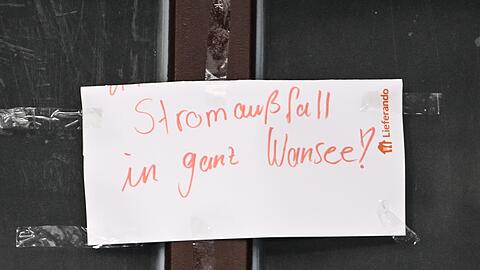 Stromaußfall
in ganz Wansee?
Lieferando